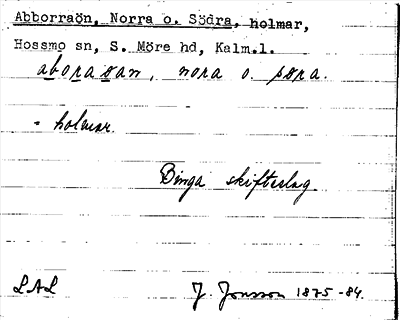 Abborraön, Norra o. Södra, holmar,
Hossmo sn, S. Möre hd, Kalm.l.
aboraøan, nora o. søra.
= holmar.
Binga skifteslag.
LAL
J. Jonsson 1875-84.